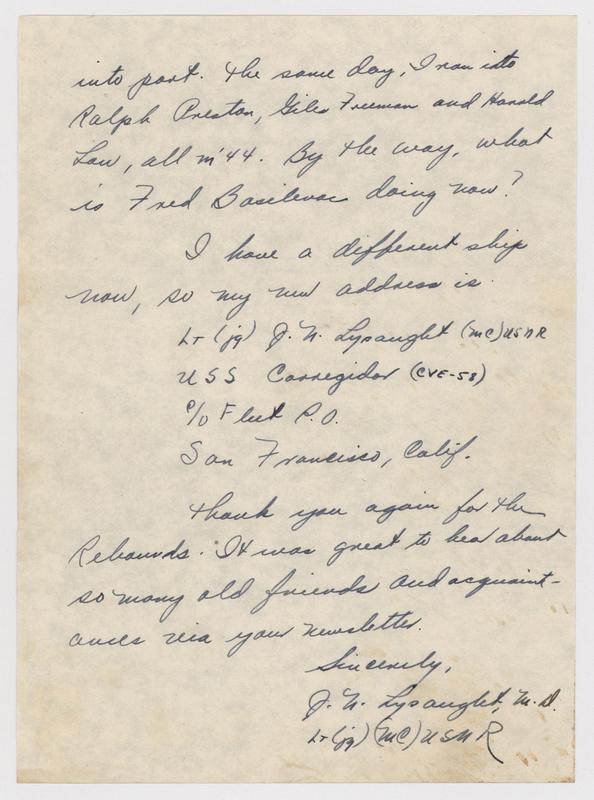 into port. The same day, I ran into
Ralph Preston, Giles Freeman and Harold
Law, all m'44. By the way, what
is Fred Basilevac doing now?
I have a different ship
now, so my new address is
Lt (jg) J. N. Lysaught (MC) USNR
USS Corregidor (CVE-58)
c/o Fleet P.O.
San Francisco, Calif.
Thank you again for the
Rebounds. It was great to hear about
so many old friends and acquaint-
ances via your newsletter.
Sincerely,
J. N. Lysaught, M.D.
Lt (jg) (MC) USNR